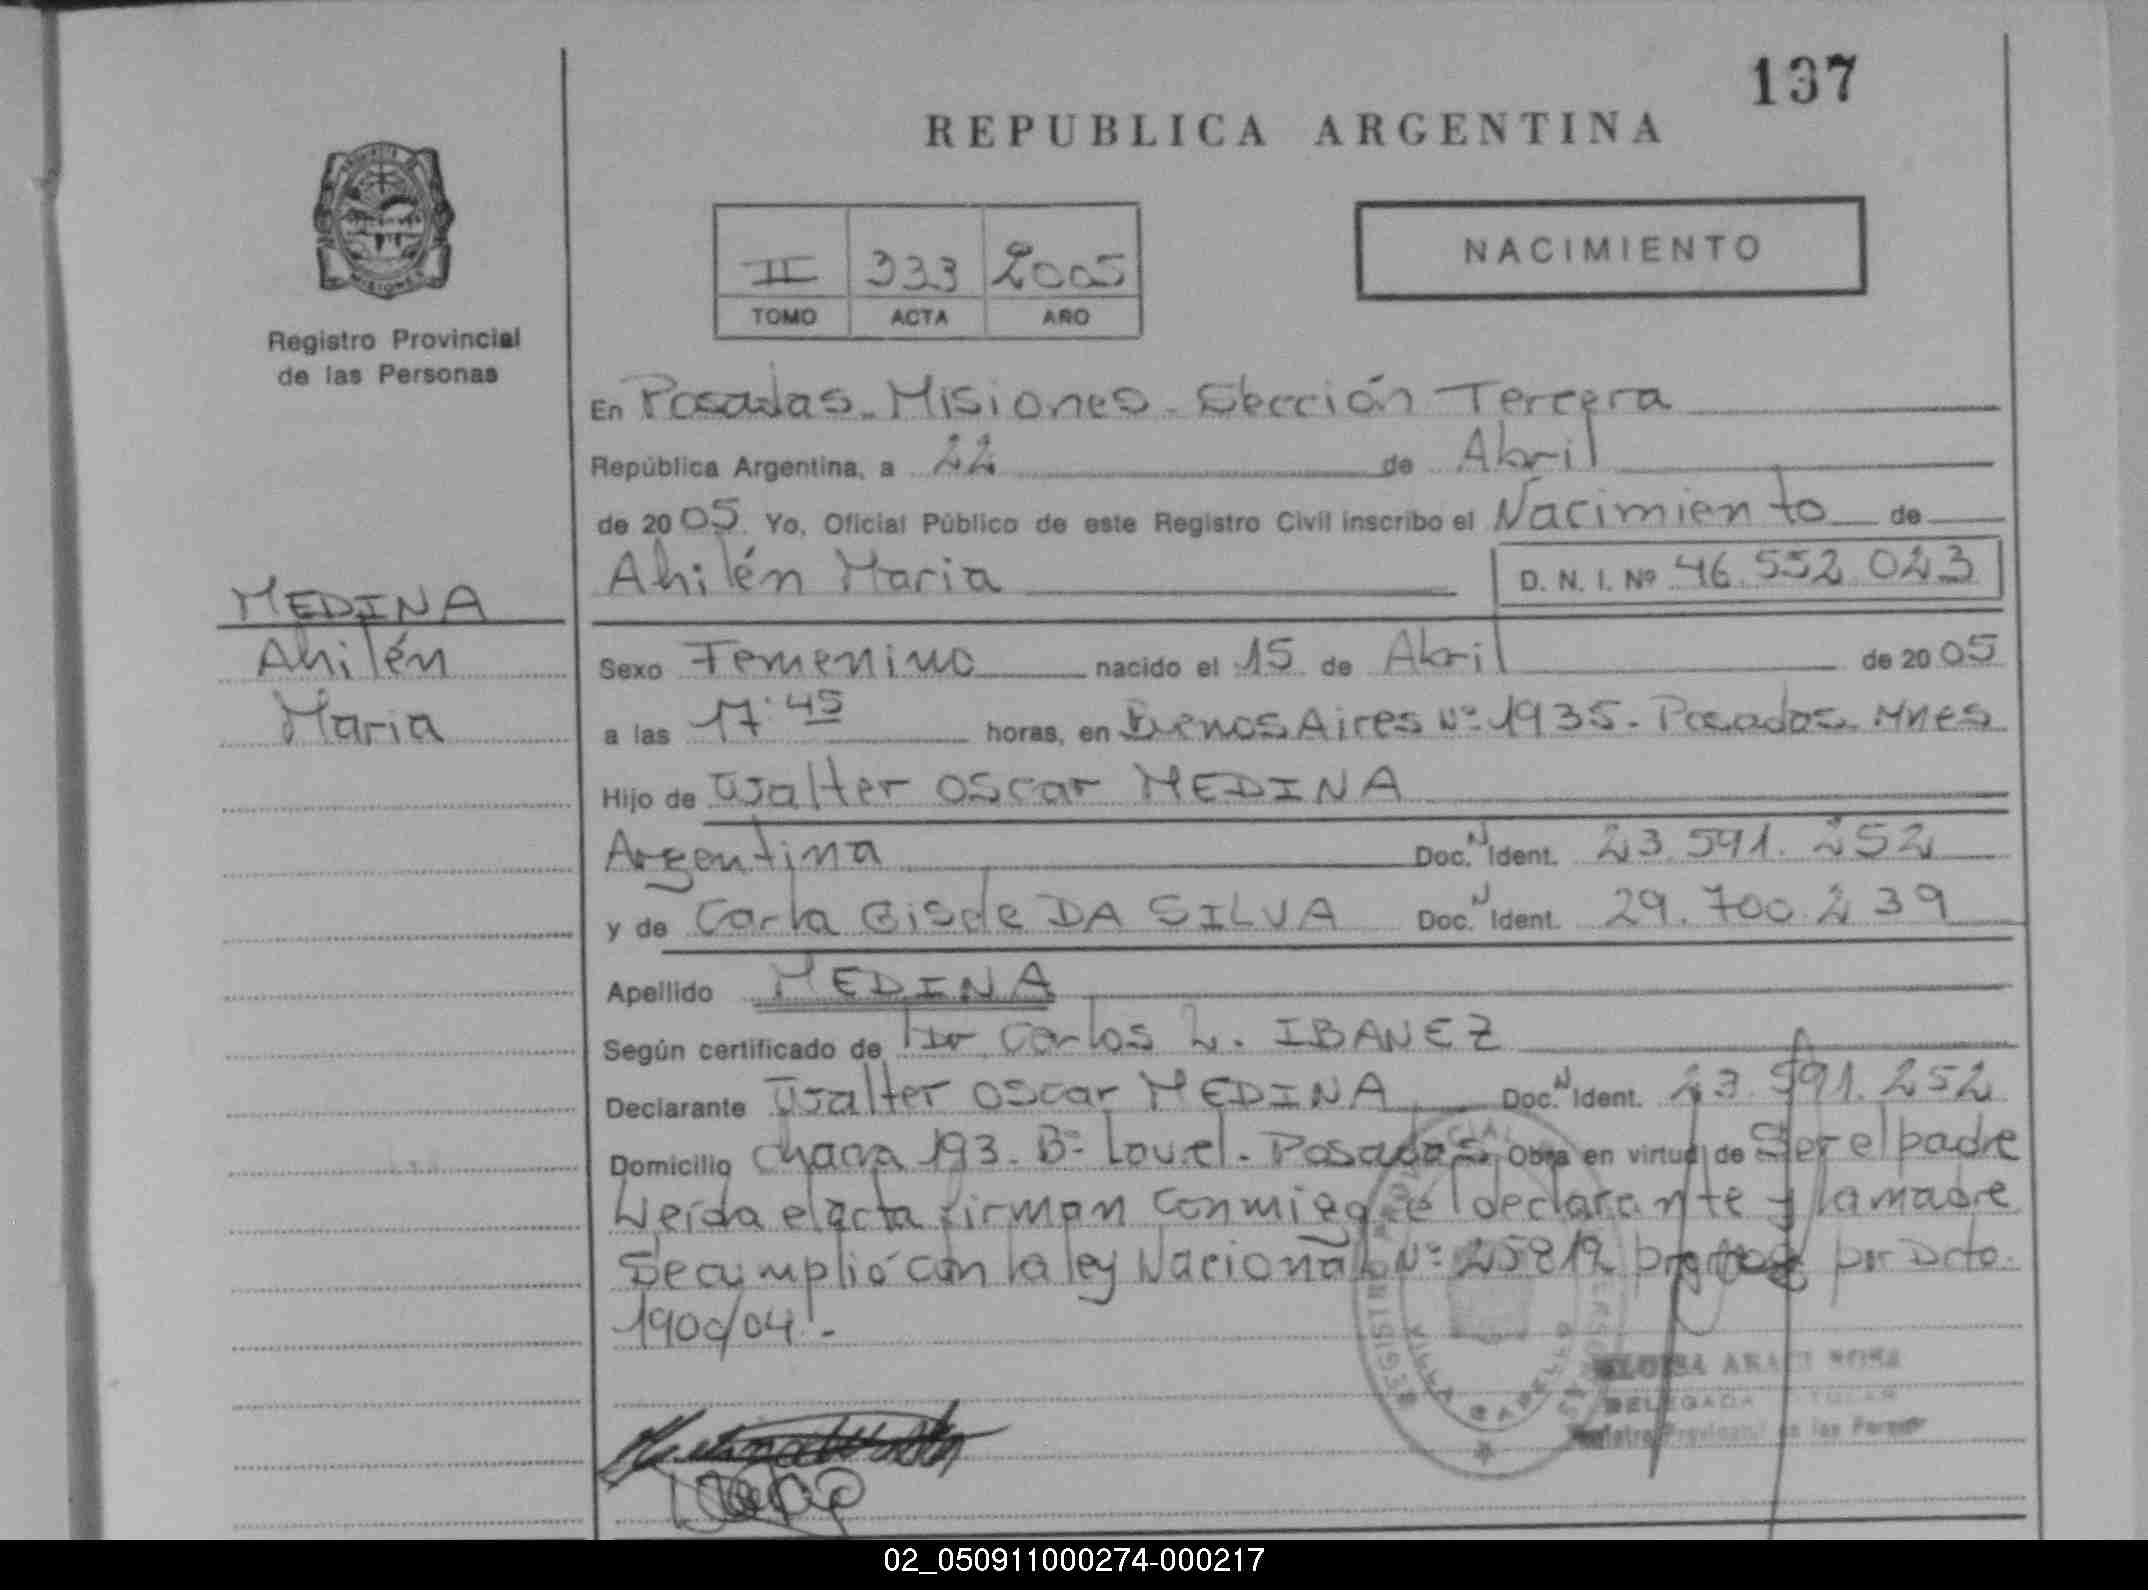 137
REPUBLICA ARGENTINA
II 333 2005
TOMO ACTA AÑO
NACIMIENTO
Registro Provincial
de las Personas
En Posadas. Misiones. Sección Tercera
República Argentina, a 22 de Abril
de 2005 Yo, Oficial Público de este Registro Civil inscribo el Nacimiento de
Ahilén Maria D. N. I. Nº 46.552.023
MEDINA
Ahilén
Maria
Sexo Femenino nacido el 15 de Abril de 2005
a las 17:45 horas, en Buenos Aires Nº 1935. Posadas. Mnes
Hijo de Walter Oscar MEDINA
Argentina Doc. N Ident. 23.591.252
y de Carla Gisele DA SILVA Doc. N Ident. 29.700.239
Apellido MEDINA
Según certificado de Dr Carlos L. IBAÑEZ
Declarante Walter Oscar MEDINA Doc. N Ident. 23.591.252
Domicilio chacra 193. Bº Posadas Obra en virtud de Ser el padre
Leída el acta firman conmigo el declarante y la madre
Se cumplió con la ley Nacional Nº 25819 por Dcto.
1900/04.-
VILLA CABELLO
DELEGADA
Registro Provincial de las Personas
02_050911000274-000217